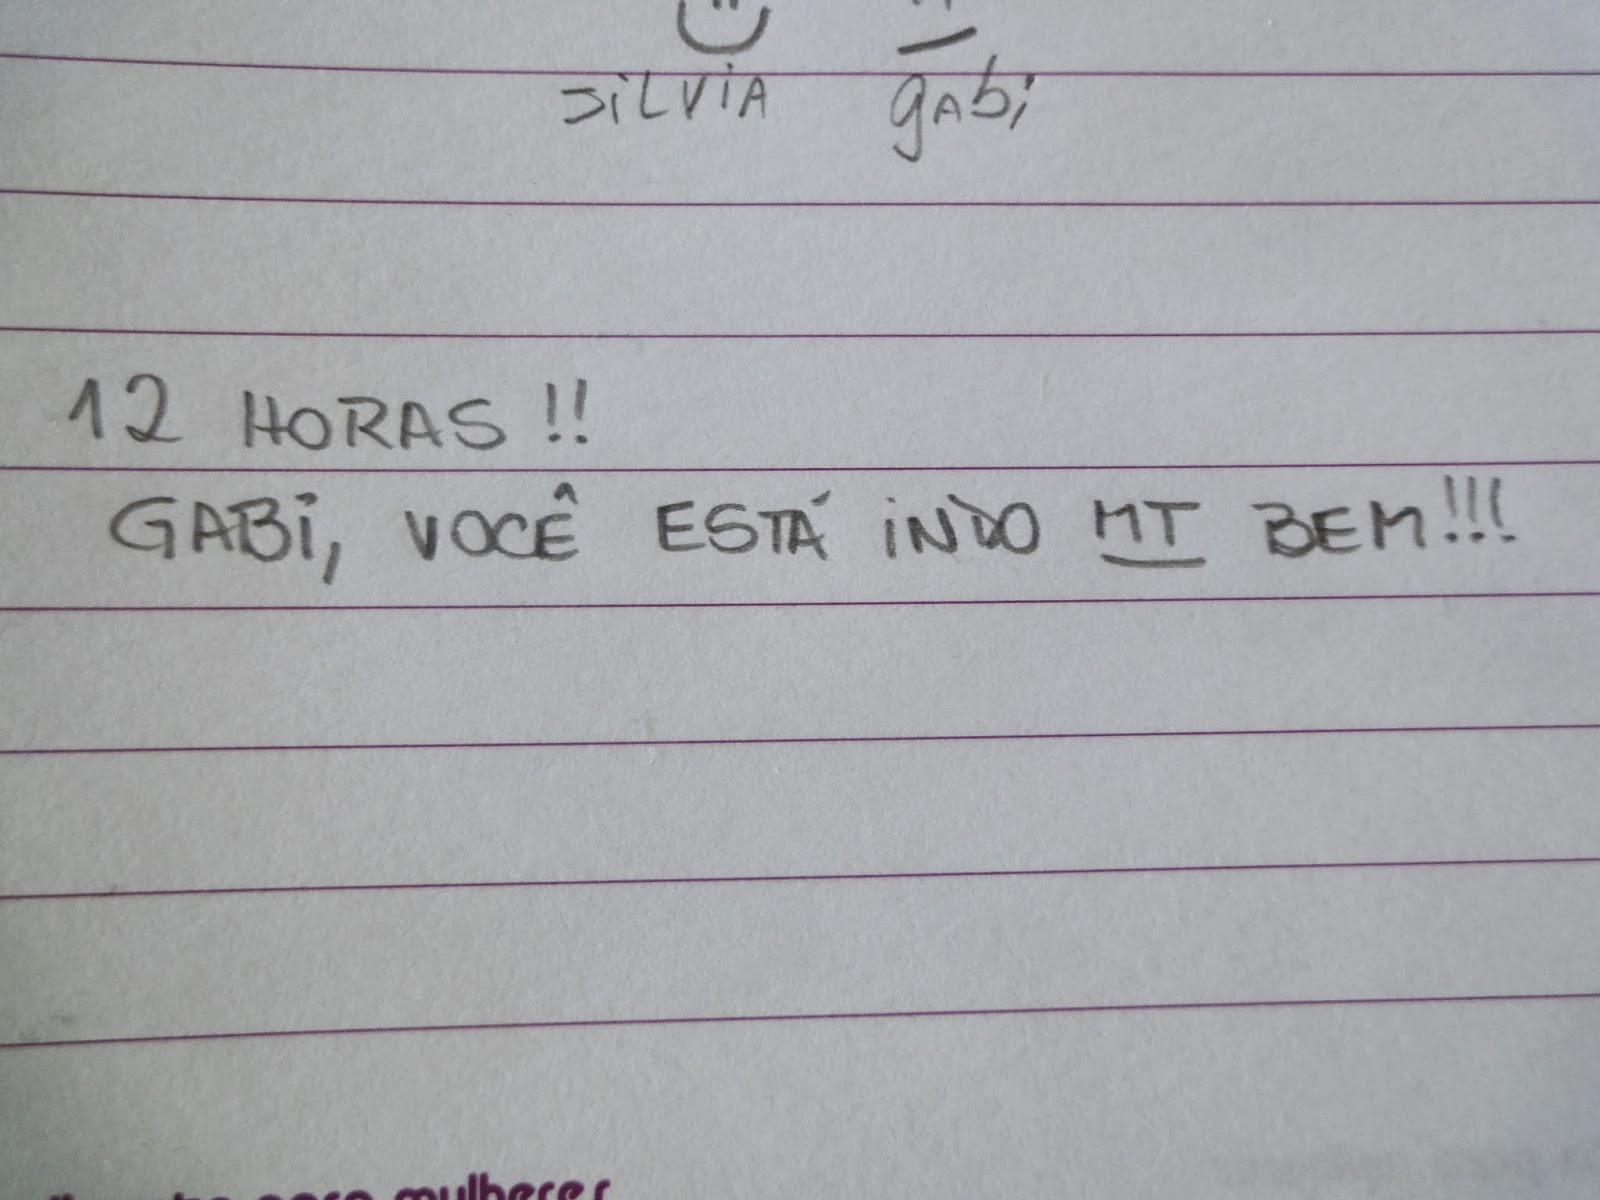 SiLVIA gAbi
12 HORAS!!
GABI, VOCÊ ESTÁ iNDO MT BEM!!!
para mulheres